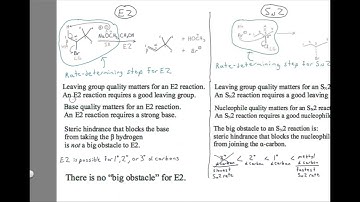 E2
SN2
NaOCH₃
CH₃OH
E2
+ HOCH₃
+ Br⊖
Rate-determining step for E2
Rate-determining step for SN2
Leaving group quality matters for an E2 reaction.
An E2 reaction requires a good leaving group.
Base quality matters for an E2 reaction.
An E2 reaction requires a strong base.
Steric hindrance that blocks the base
from taking the β hydrogen
is not a big obstacle to E2.
E2 is possible for 1°, 2°, or 3° α carbons
There is no "big obstacle" for E2.
Leaving group quality matters for an S
An SN2 reaction requires a good leaving
Nucleophile quality matters for an SN2
An SN2 reaction requires a good nucleophil
The big obstacle to an SN2 reaction is:
steric hindrance that blocks the nucleophil
from joining the α-carbon.
3° α carbon < 2° α carbon < 1° α carbon < methyl α carbon
slowest SN2 rate
fastest SN2 rate